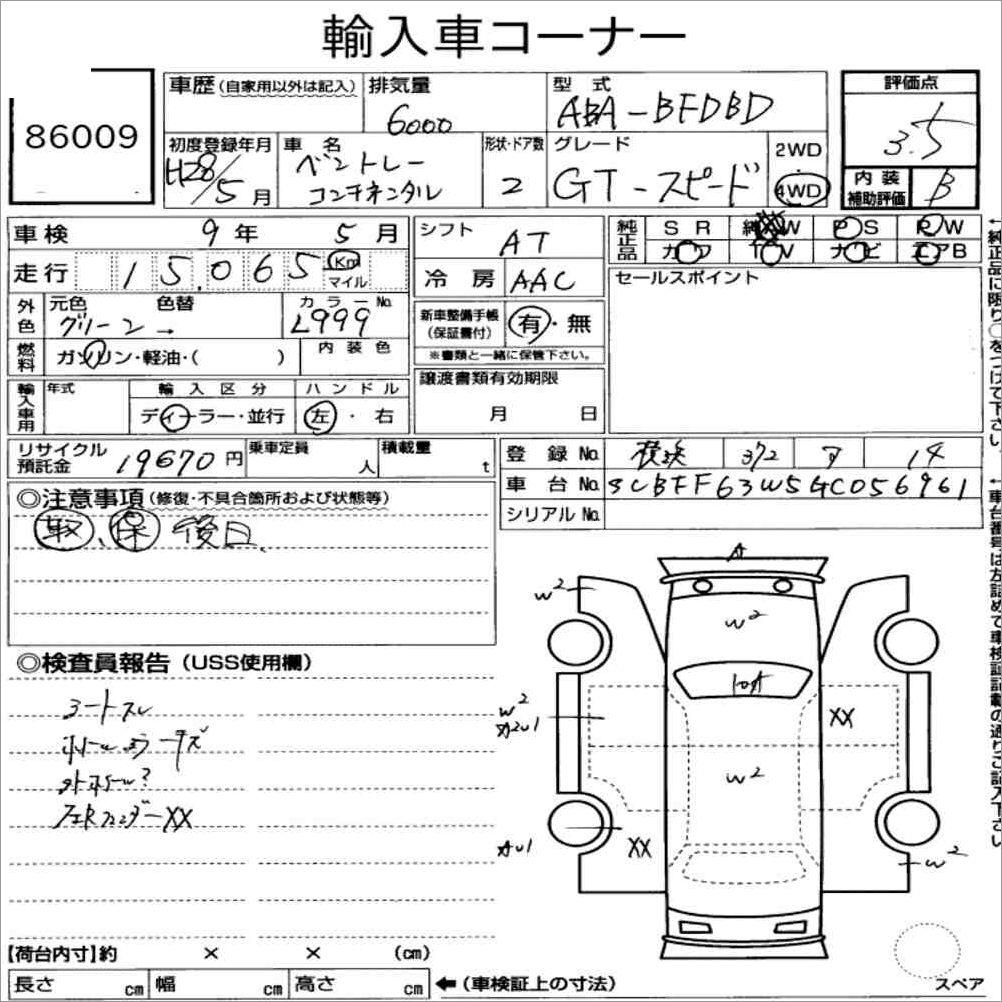 輸入車コーナー
86009
車歴 (自家用以外は記入)
排気量
6000
型式
ABA-BFDBD
評価点
3.5
初度登録年月
H28/5月
車名
ベントレー
コンチネンタル
形状・ドア数
2
グレード
GT-スピード
2WD
4WD
内装
補助評価
B
車検 9年 5月
走行 15,065 Km
マイル
シフト AT
冷房 AAC
純正品
SR
W
PS
RW
カワ
TV
ナビ
エアB
セールスポイント
外色
元色
色替
カラーNo
グリーン→
L999
燃料
ガソリン・軽油・( )
内装色
新車整備手帳
(保証書付)
有・無
※書類と一緒に保管下さい。
輸入車用
年式
輸入区分
ディーラー・並行
ハンドル
左・右
譲渡書類有効期限
月 日
リサイクル
預託金
19670円
乗車定員
人
積載量
t
登録No. 横浜 372 14
車台No. SCBFF63W5GC056961
シリアルNo.
◎注意事項 (修復・不具合箇所および状態等)
取、保 後日
◎検査員報告 (USS使用欄)
コートスレ
キズ
外ホイールw?
フェンダーXX
A
W2
W2
W2
AW1
XX
W2
AW1
XX
W2
【荷台内寸】約 × × (cm)
長さ cm 幅 cm 高さ cm
←(車検証上の寸法)
スペア
←純正品に限り○をつけて下さい。
←車台番号は左詰めで車検証記載の通りご記入下さい